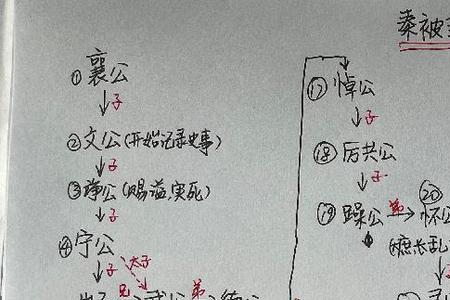 秦被
①襄公
子
②文公(开始记录史事)
子
③竫公(赐谥实死)
子
④宁公
子 太子
兄 武公 弟 德公
⑰悼公
子
⑱厉共公
子
⑲躁公 弟 ⑳怀公
(庶长乱